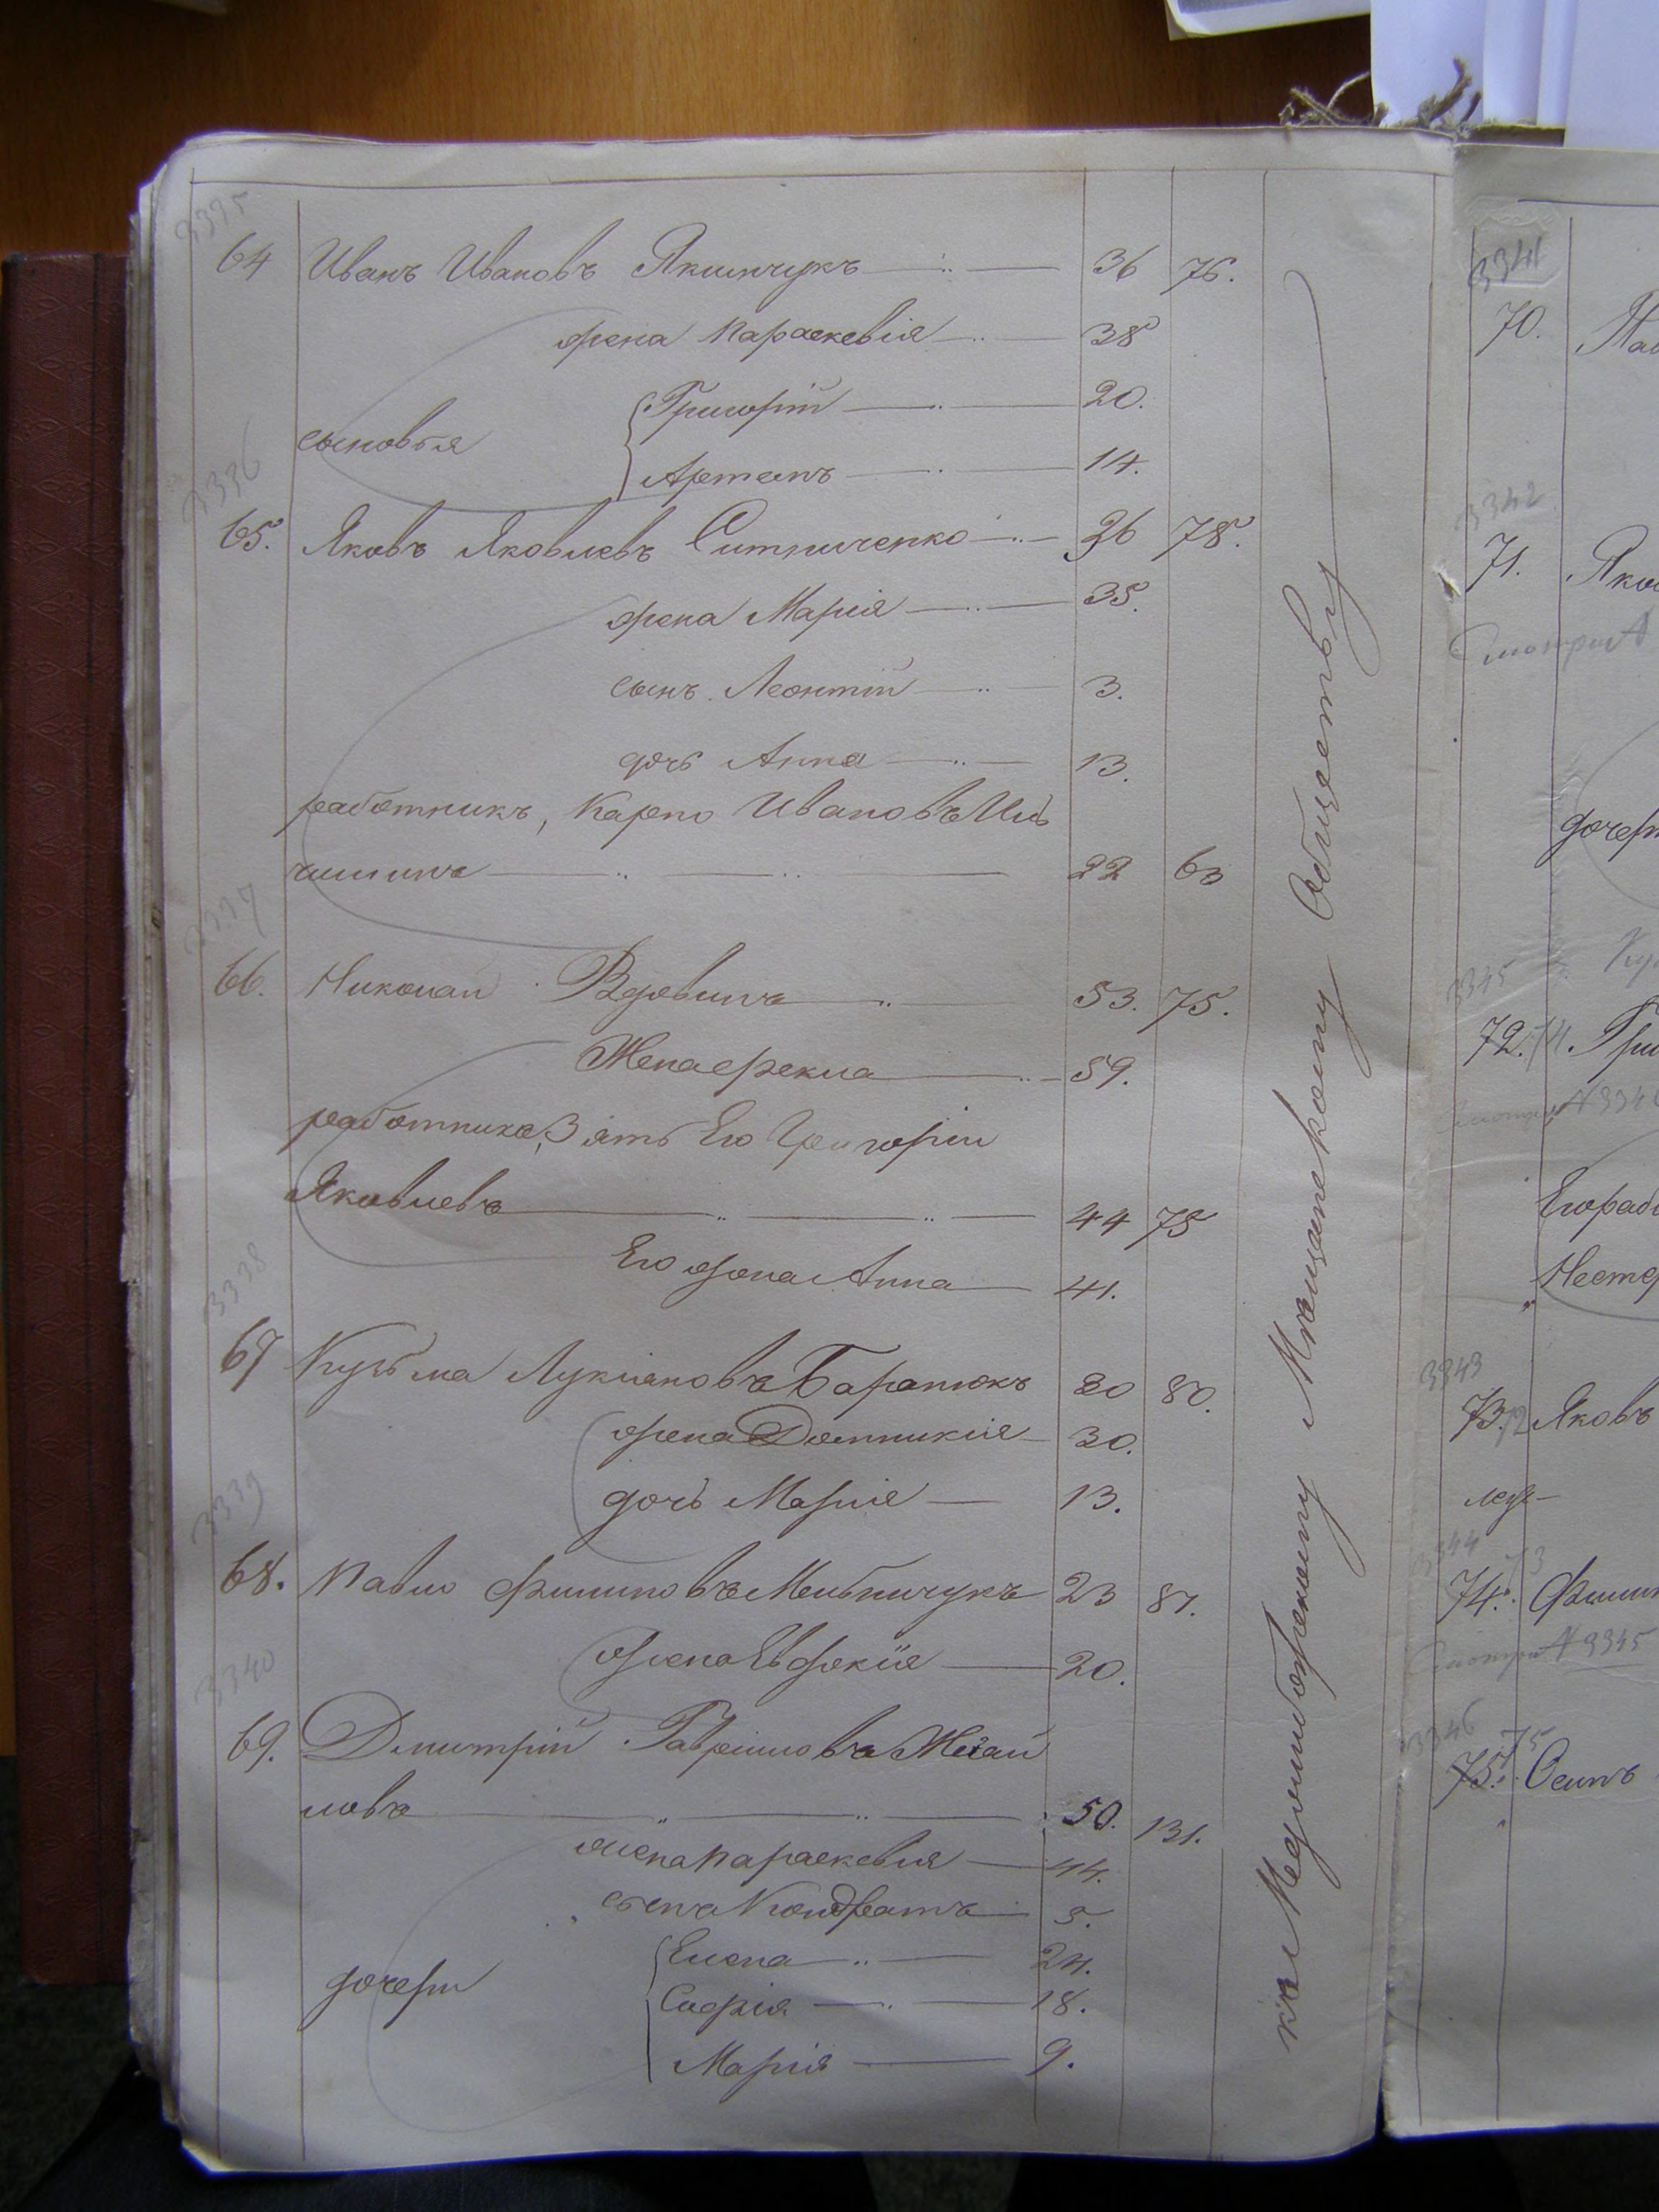 3335
64 Иванъ Ивановъ Якимчукъ 36 76.
жена Параскевія 38
сыновья
Григорій 20.
Артемъ 14.
3336
65. Яковъ Яковлевъ Ситниченко 36 78.
жена Марія 35.
сынъ Леонтій 3.
дочь Анна 13.
работникъ, Карпо Ивановъ
22 63
3337
66. Николай Вдовинъ 53. 75.
Жена 59.
работникъ, Зять Его Григорій
Яковлевъ 44 75
Его жена Анна 41.
3338
67 Кузьма Лукіяновъ Баранюкъ 30 80.
жена Домникія 30.
дочь Марія 13.
3339
68. Павло Филиповъ Мельничукъ 23 81.
жена Евдокія 20.
3340
69. Дмитрій Гавриловъ
ловъ 50. 131.
жена Параскевія 44.
сынъ Кондратъ 5.
дочери
Елена 24.
Софія 18.
Марія 9.
къ Меджибожскому Мѣщанскому Обществу
3341
70.
3342
71. Яко
Смотри №
дочери
3345
72. 71. Гри
Смотри № 334
Его раб
Несте
3343
73. 72 Яковъ
3344
74. 73 Филип
Смотри № 3345
3346
75. 75 Осипъ